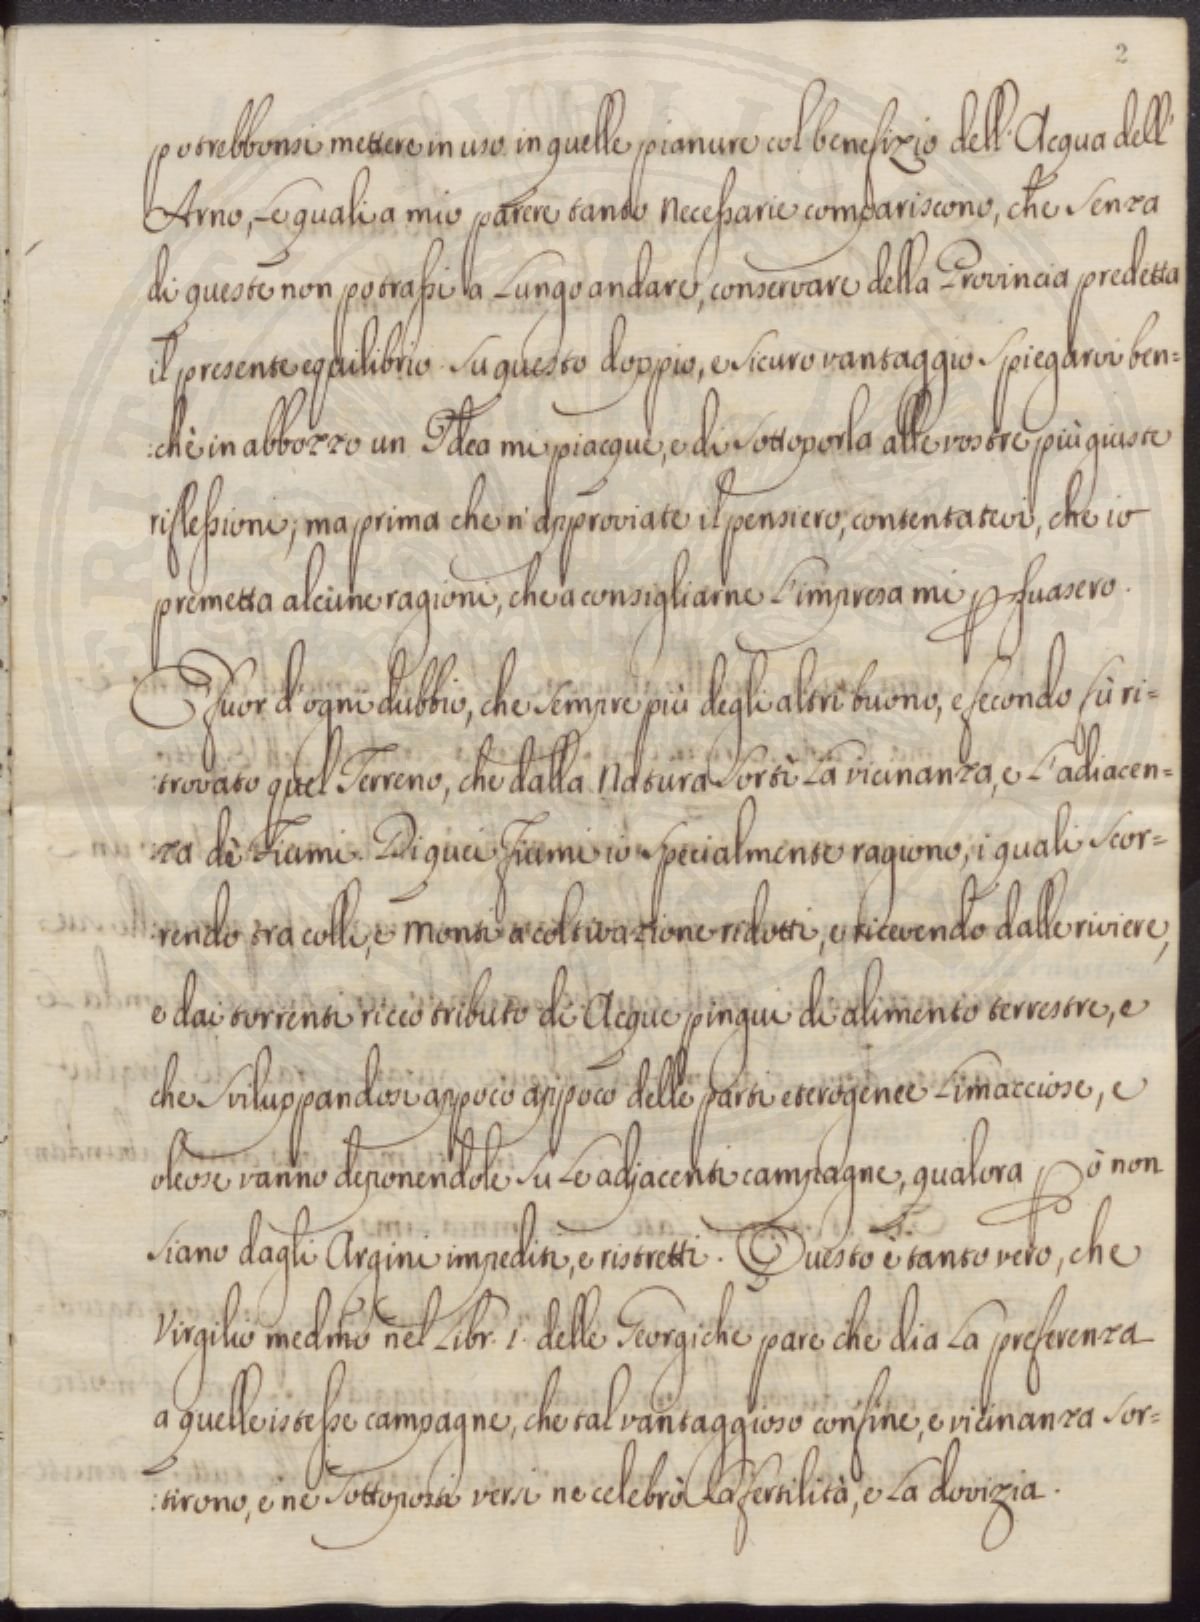 2
potrebbonsi mettere in uso in quelle pianure col benefizio dell'Acqua dell'
Arno, Le quali a mio parere tanto necessarie compariscono, che senza
di queste non potrassi a Lungo andare, conservare della Provincia predetta
il presente equilibrio. Su questo doppio, e sicuro vantaggio spiegarvi ben=
:chè in abbozzo un Idea mi piacque, e di sottoporla alle vostre più giuste
riflessioni; ma prima che n'approviate il pensiero, contentatevi, che io
premetta alcune ragioni, che a consigliarne L'impresa mi psuasero.
È fuor d'ogni dubbio, che sempre più degli altri buono, e fecondo fù ri=
:trovato quel Terreno, che dalla Natura sortì La vicinanza, e L'adiacen=
:za dè Fiumi. Di quei Fiumi io specialmente ragiono, i quali scor=
:rendo tra colli, e Monti a coltivazione ridotti, e ricevendo dalle riviere,
e dai torrenti ricco tributo di Acque pingui di alimento terrestre, e
che sviluppandosi appoco appoco delle parti eterogenee Limacciose, e
oleose vanno deponendole su Le adjacenti campagne, qualora pò non
siano dagli Argini impediti, e ristretti. Questo è tanto vero, che
Virgilio medmo nel Libr. 1. delle Georgiche pare che dia La preferenza
a quelle istesse campagne, che tal vantaggioso confine, e vicinanza sor=
:tirono, e ne sottoposti versi ne celebrò La fertilità, e La dovizia.